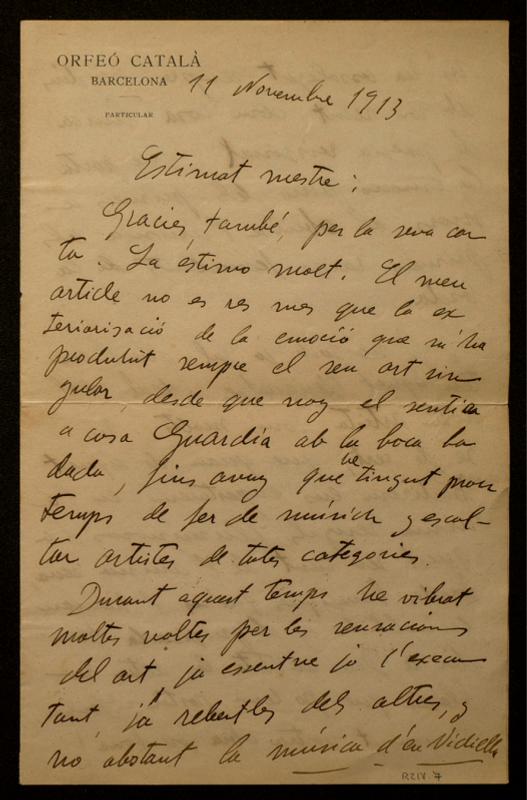 ORFEÓ CATALÀ
BARCELONA
PARTICULAR
11 Novembre 1913
Estimat mestre:
Gracies també, per la seva car
ta. La éstimo molt. El meu
article no es res mes que la ex
teriorisació de la emoció que m'ha
produhit sempre el seu art sin
gular, desde que noy el sentia
a casa Guardia ab la boca ba
dada, fins avuy que he tingut prou
temps de fer de músich y escol-
tar artistes de totes categories.
Durant aquest temps he vibrat
moltes voltes per les sensacions
del art, ja essentne jo l'execu
tant, já rebentles dels altres, y
no obstant la música d'en Vidiella
R214.7